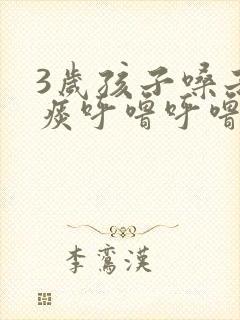 3歲孩子嗓子
痰呼噜呼噜
李鸾漢